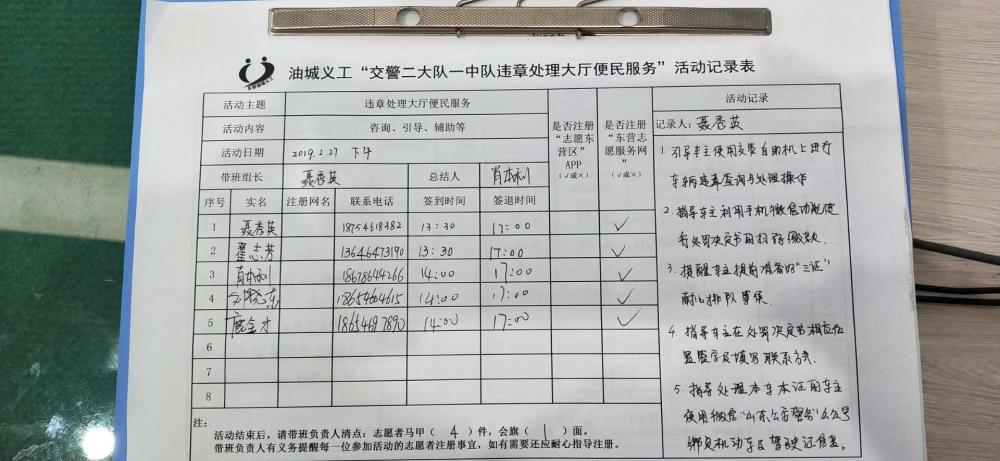 油城义工“交警二大队一中队违章处理大厅便民服务”活动记录表
活动主题 违章处理大厅便民服务
活动内容 咨询、引导、辅助等
活动日期 2019.2.27 下午
带班组长 聂秀英 总结人 肖本利
序号 实名 注册网名 联系电话 签到时间 签退时间
是否注册“志愿东营区”APP（√或×）
是否注册“东营志愿服务网”（√或×）
1 聂秀英 18754618382 13:30 17:00 √
2 翟志芳 13646473190 13:30 17:00 √
3 肖本利 18678644266 14:00 17:00 √
4 18654604615 14:00 17:00 √
5 鹿金才 18654697890 14:00 17:00 √
6
7
8
注：
活动结束后，请带班负责人清点：志愿者马甲（ 4 ）件，会旗（ 1 ）面。
带班负责人有义务提醒每一位参加活动的志愿者注册事宜，如有需要还应耐心指导注册。
活动记录
记录人：聂秀英
1. 引导车主使用交警自助机上进行
车辆违章查询与处理操作
2. 指导车主利用手机微信功能进
行处罚决定书的扫存缴款.
3. 提醒车主提前准备好“三证”
耐心排队等候.
4. 指导车主在处罚决定书相应位
置签字及填写联系方式.
5. 指导处理本车本证的车主
使用微信“山东公安警务”公众号
绑定机动车及驾驶证信息.